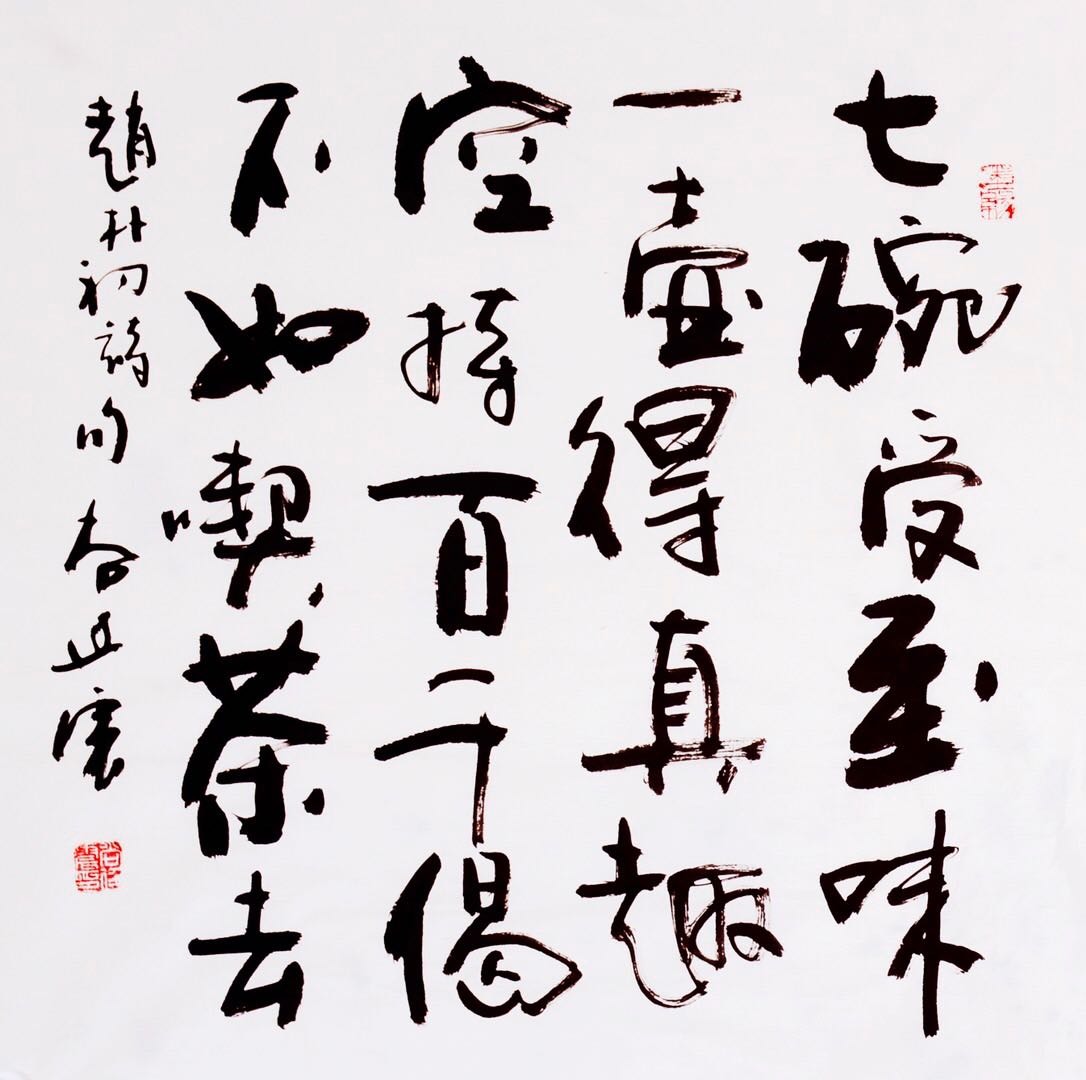 七碗受至味
一壺得真趣
空持百千偈
不如喫茶去
趙朴初詩句